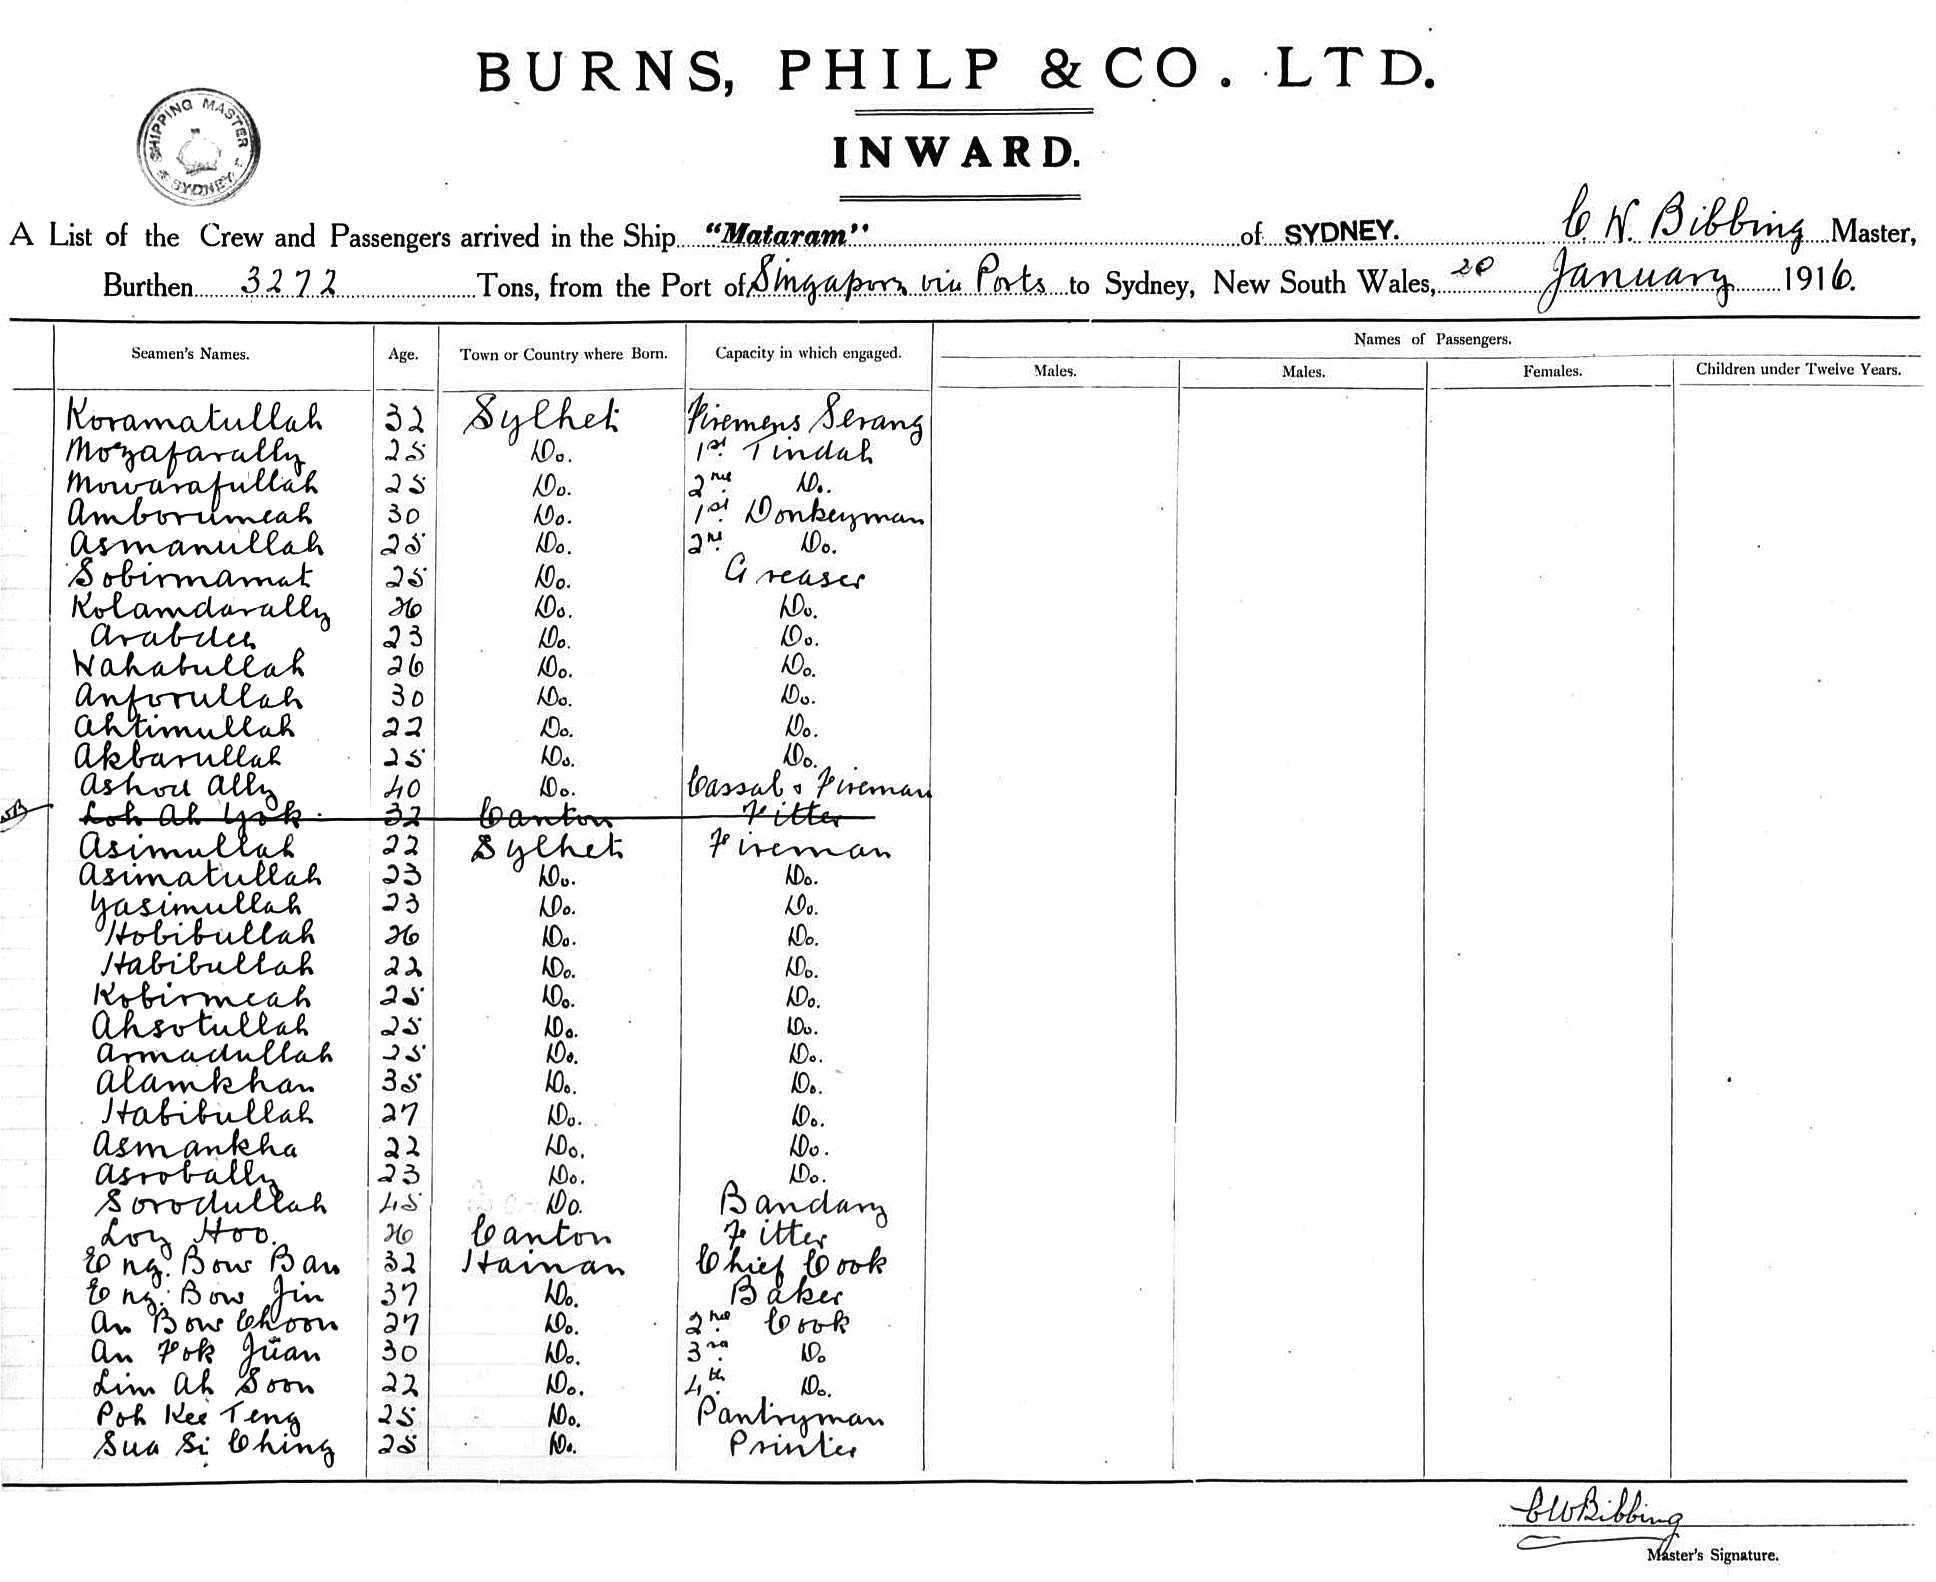 BURNS, PHILP & CO. LTD.
SHIPPING MASTER
SYDNEY
INWARD.
A List of the Crew and Passengers arrived in the Ship "Mataram" of SYDNEY. C. W. Bibbing Master,
Burthen 3272 Tons, from the Port of Singapore via Ports to Sydney, New South Wales, 20 January 1916.
Seamen's Names. Age. Town or Country where Born. Capacity in which engaged. Names of Passengers.
Males. Males. Females. Children under Twelve Years.
Koramatullah 32 Sylhet Firemens Serang
Mozafarally 25 Do. 1st Tindah
Mowarafullah 25 Do. 2nd Do.
Amborumeah 30 Do. 1st Donkeyman
Asmanullah 25 Do. 2nd Do.
Sobirmamat 25 Do. Greaser
Kolamdarally 26 Do. Do.
Arabdee 23 Do. Do.
Wahabullah 26 Do. Do.
Anforullah 30 Do. Do.
Ahtimullah 22 Do. Do.
Akbarullah 25 Do. Do.
Ashod Ally 40 Do. Cassab & Fireman
Loh Ah Yok 32 Canton Fitter
Asimullah 22 Sylhet Fireman
Asimatullah 23 Do. Do.
Yasimullah 23 Do. Do.
Hobibullah 26 Do. Do.
Habibullah 22 Do. Do.
Kobirmeah 25 Do. Do.
Ahsotullah 25 Do. Do.
Armadullah 25 Do. Do.
Alamkhan 35 Do. Do.
Habibullah 27 Do. Do.
Asmankha 22 Do. Do.
Asrobally 23 Do. Do.
Sorodullah 45 Do. Bandary
Loy Hoo. 26 Canton Fitter
Eng. Bow Ban 32 Hainan Chief Cook
Eng. Bow Jin 37 Do. Baker
An Bow Choon 27 Do. 2nd Cook
An Fok Juan 30 Do. 3rd Do
Lim Ah Soon 22 Do. 4th Do.
Poh Kee Teng 25 Do. Pantryman
Sua Si Ching 25 Do. Printer
CWBibbing
Master's Signature.